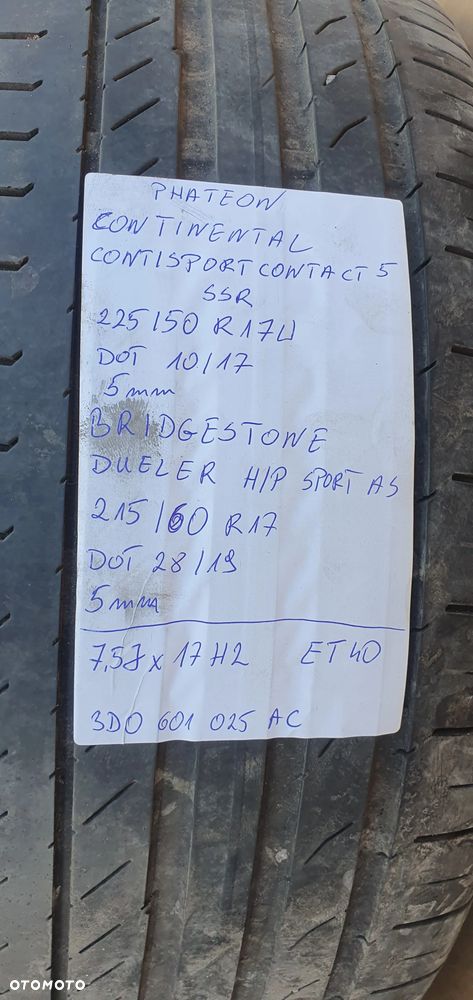 PHATEON
CONTINENTAL
CONTISPORTCONTACT 5
SSR
225/50 R17
DOT 10/17
5mm
BRIDGESTONE
DUELER H/P SPORT AS
215/60 R17
DOT 28/19
5mm
7,5J x 17 H2 ET 40
3D0 601 025 AC
OTOMOTO